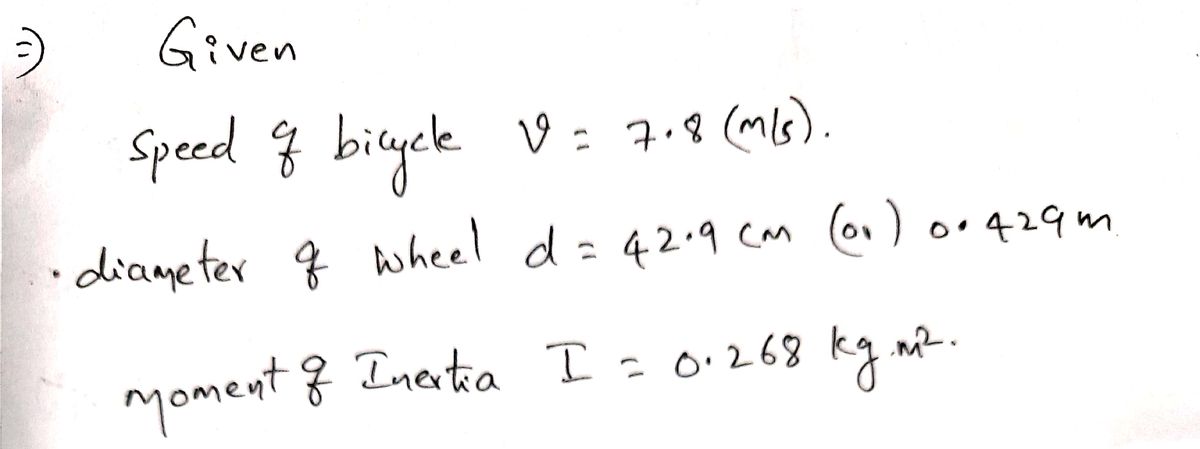 ⇒ Given
Speed of bicycle v = 7.8 (m/s).
• diameter of wheel d = 42.9 cm (or) 0.429 m
moment of Inertia I = 0.268 kg.m².